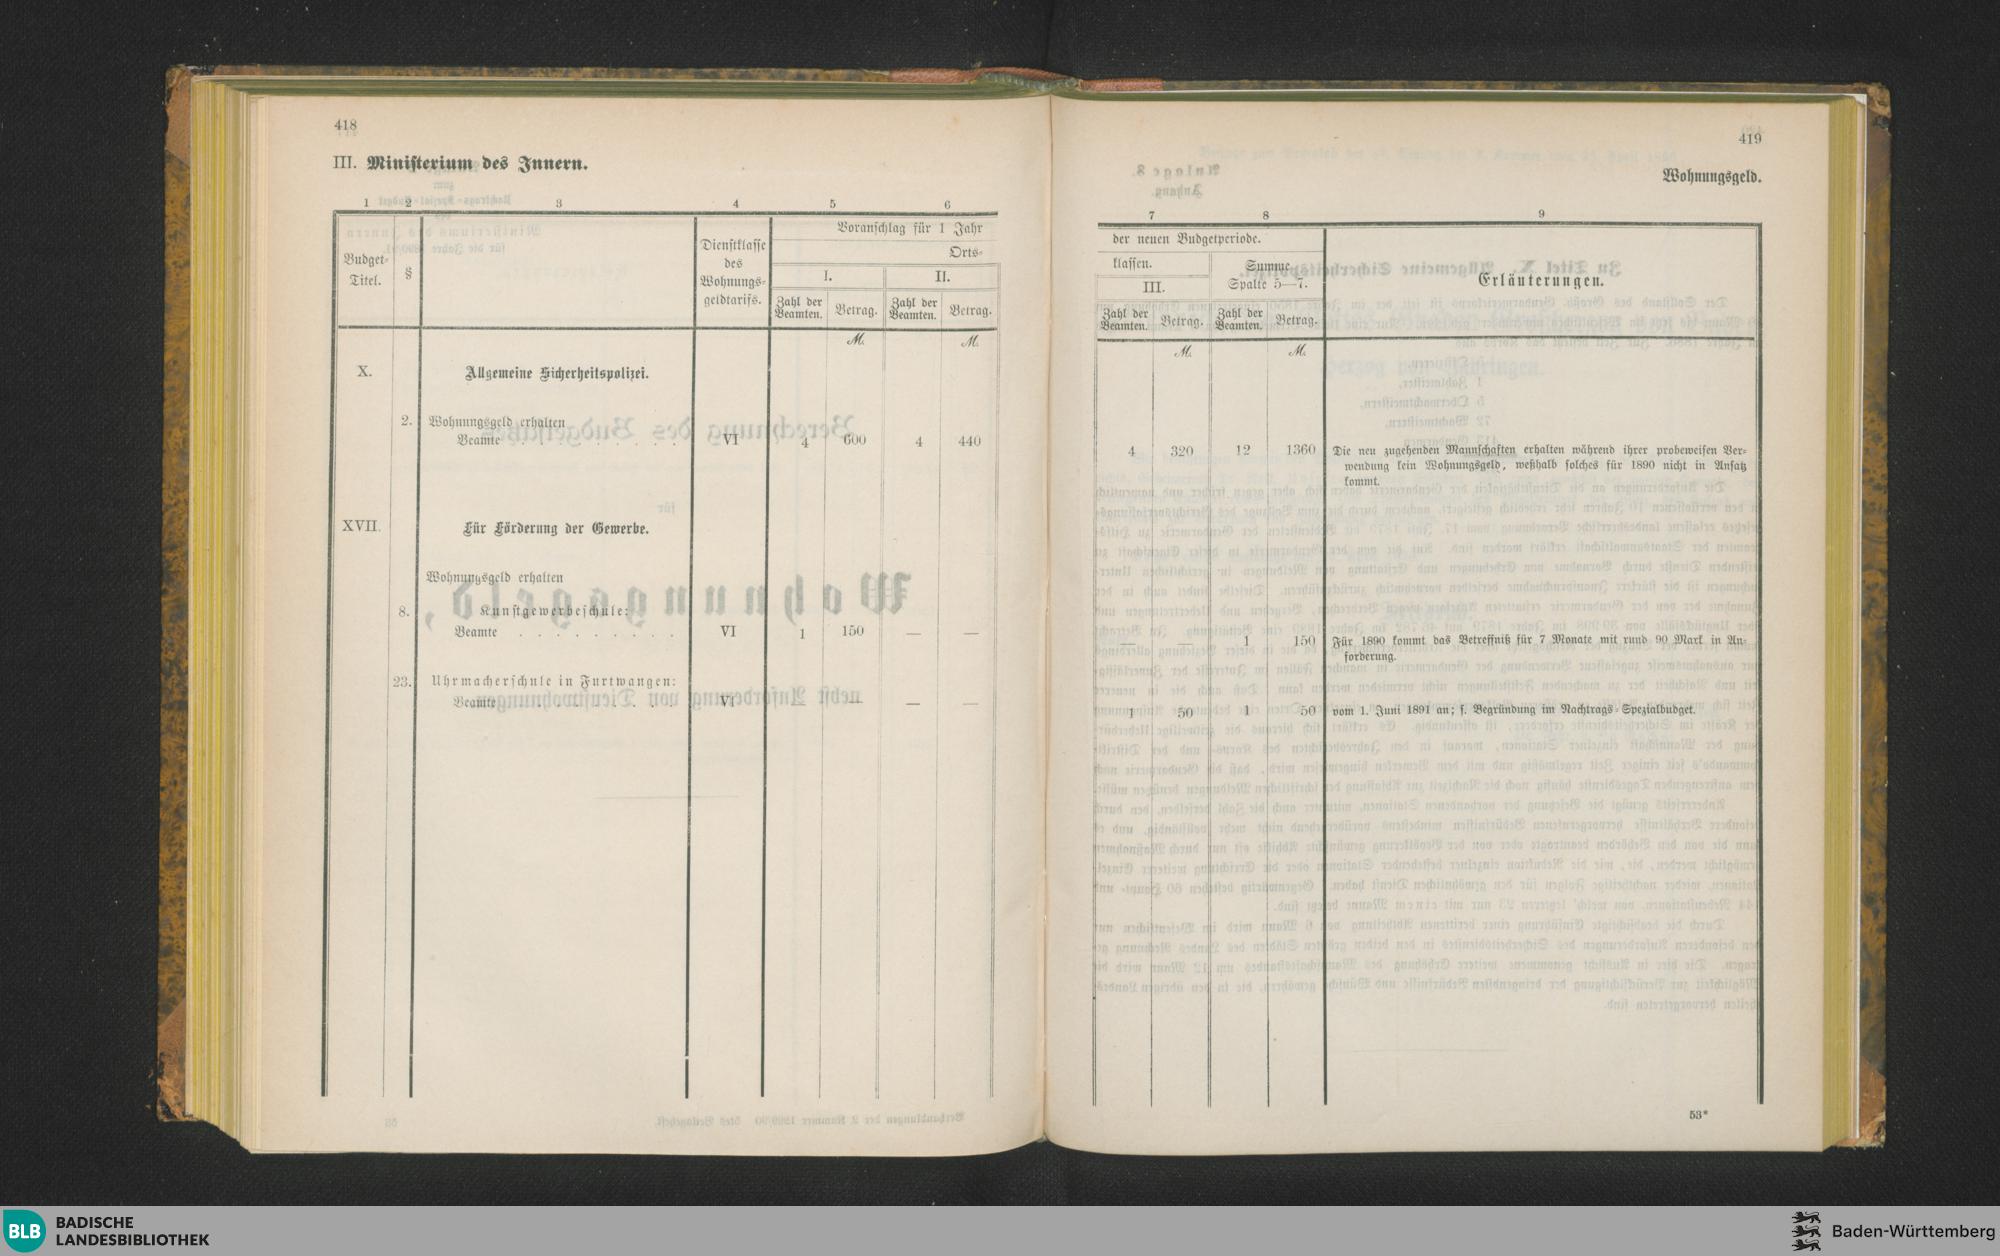 418
III. Ministerium des Innern.
1 2 3 4 5 6
Budget-
Titel.
§
Dienstklasse
des
Wohnungs-
geldtarifs.
Voranschlag für 1 Jahr
Orts-
I. II.
Zahl der
Beamten. Betrag. Zahl der
Beamten. Betrag.
M. M.
X. Allgemeine Sicherheitspolizei.
2. Wohnungsgeld erhalten
Beamte . . . . . . . . . . VI 4 600 4 440
XVII. Für Förderung der Gewerbe.
Wohnungsgeld erhalten
8. Kunstgewerbeschule:
Beamte . . . . . . . . . VI 1 150 — —
23. Uhrmacherschule in Furtwangen:
Beamte . . . . . . . . . VI — — — —
419
Wohnungsgeld.
7 8 9
der neuen Budgetperiode.
klassen.
III.
Summe
Spalte 5—7.
Erläuterungen.
Zahl der
Beamten. Betrag. Zahl der
Beamten. Betrag.
M. M.
4 320 12 1360 Die neu zugehenden Mannschaften erhalten während ihrer probeweisen Ver-
wendung kein Wohnungsgeld, weßhalb solches für 1890 nicht in Ansatz
kommt.
— — 1 150 Für 1890 kommt das Betreffniß für 7 Monate mit rund 90 Mark in An-
forderung.
1 50 1 50 vom 1. Juni 1891 an; s. Begründung im Nachtrags-Spezialbudget.
53*
BLB BADISCHE
LANDESBIBLIOTHEK
Baden-Württemberg